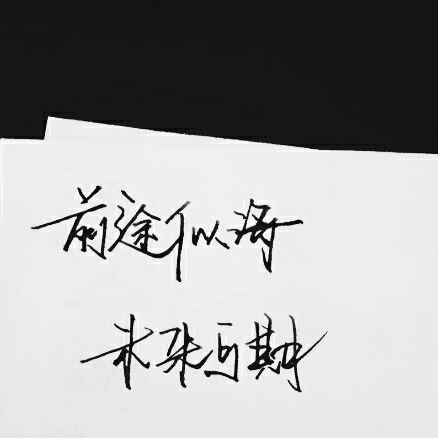 前途似海
未来可期